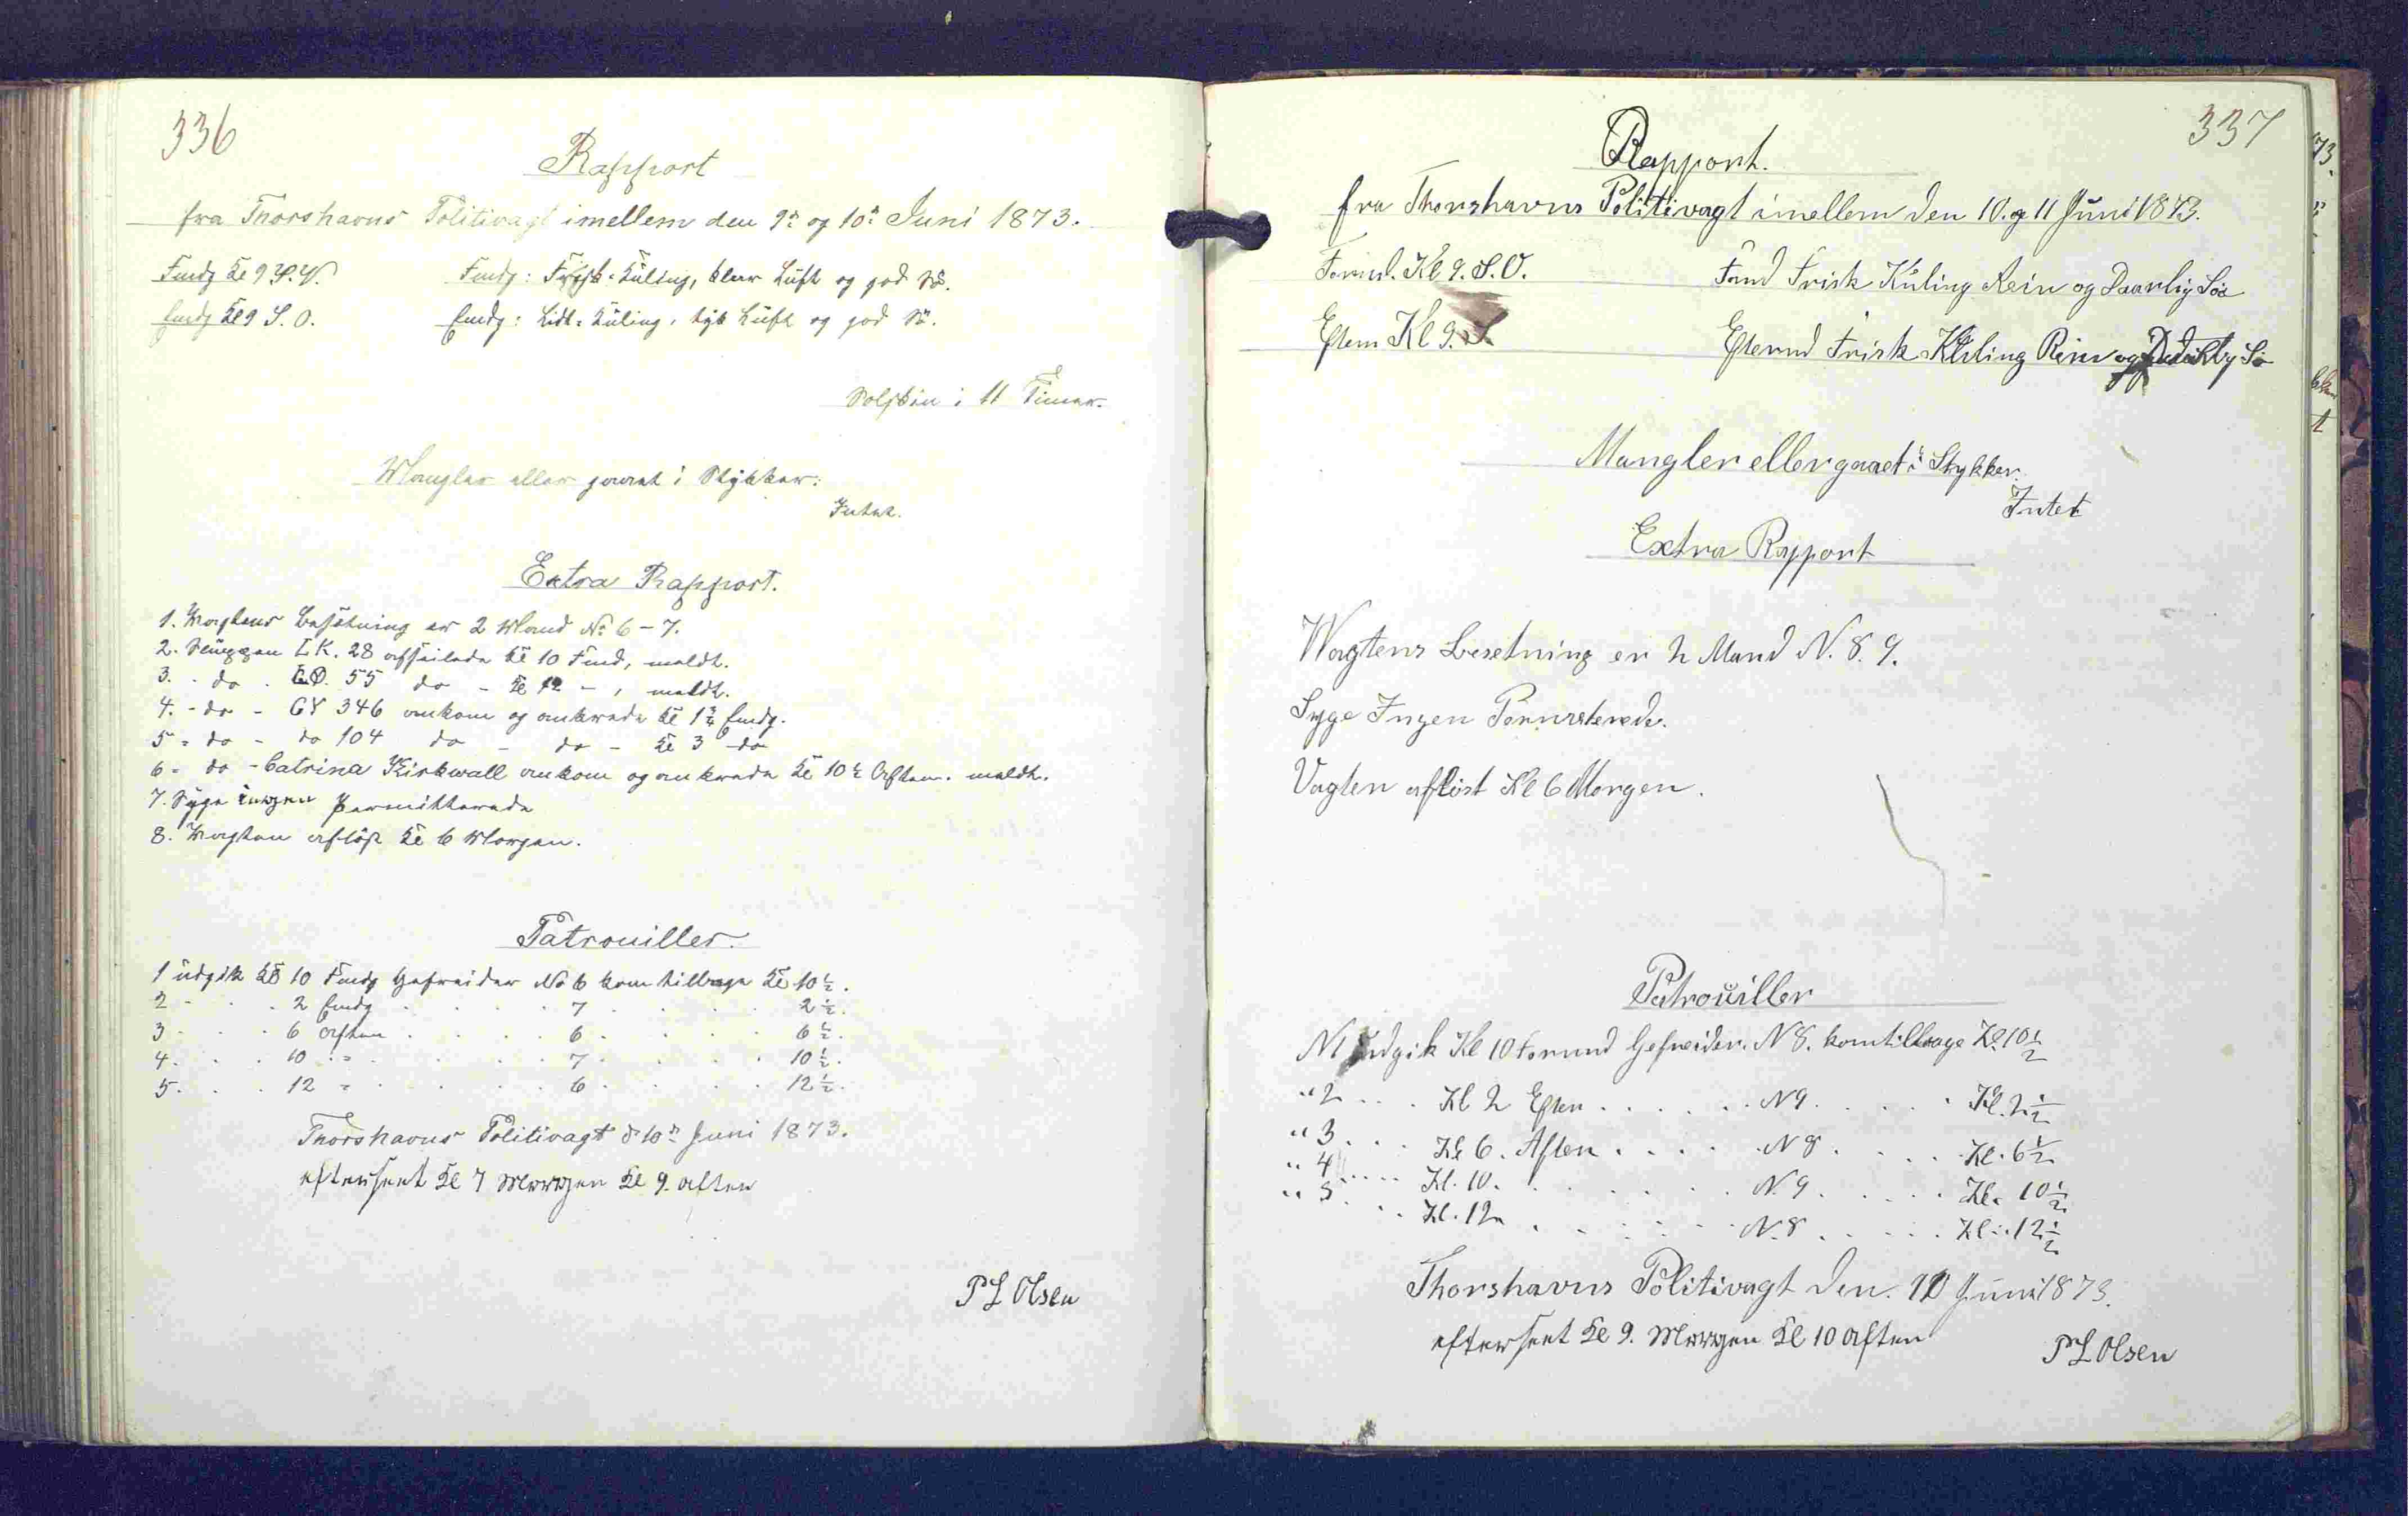 336
Rapport
fra Thorshavns Politivagt imellem den 9de og 10de Juni 1873.
Fmdg Kl 9 S.V. Fmdg: Frisk-Kuling, klar Luft og god Sö.
Emdg Kl 9 S.O. Emdg: Lidt-Kuling, tyk Luft og god Sö.
Solskin i 11 Timer.
Mangler eller gaaet i Stÿkker:
Intet.
Extra Rapport.
1. Wagtens Besötning er 2 Mand No 6-7.
2. Sluppen LK. 28 afseilede Kl 10 Fmd, meldt.
3. - do - 55 do - Kl 12 - , meldt.
4. - do - GY 346 ankom og ankrede Kl 1¾ Emdg.
5 - do - do 104 do - do - Kl 3 - do
6 - do - Catrina Kirkwall ankom og ankrede Kl 10½ Aften. meldt.
7. Syge ingen Permitterede
8. Wagten aflöst Kl 6 Morgen.
Patrouiller.
1 udgik Kl 10 Fmdg Gefreider No 6 kom tilbage Kl 10½.
2 - . . 2 Emdg . . . . 7 . . . . 2½.
3 - . . 6 Aften . . . . 6 . . . . 6½.
4. . . 10 - . . . . 7 . . . . 10½.
5. . . 12 - . . . . 6 . . . . 12½.
Thorshavns Politivagt d 10de Juni 1873.
efterseet Kl 7 Morgen Kl 9. Aften
PL Olsen
337
Rapport.
fra Thorshavns Politivagt imellem den 10. og 11 Juni 1873.
Formd. Kl 9. S.O. Fmd Frisk Kuling Rein og Daarlig Söe
Eftem Kl 9. S. Efternd Frisk Kuling Rein og Sö
Mangler eller gaaet i Stykker.
Intet
Extra Rapport
Wagtens Besetning er 2 Mand N. 8. 9.
Syge Ingen Permeterede.
Vagten aflöst Kl 6 Morgen.
Patrouiller
N 1 Udgik Kl 10 Formd Gefreider. N 8. kom tilbage Kl 10½
" 2 . . . Kl 2 Eften . . . . . N 9. . . . . Kl. 2½
" 3 . . . Kl 6. Aften . . . . N 8 . . . . Kl. 6½
" 4 . . . . Kl. 10. . . . . . N. 9 . . . . . Kl. 10½
" 5 . . . Kl. 12 . . . . . N. 8 . . . . . Kl. 12½
Thorshavns Politivagt Den. 10 Juni 1873.
efterseet Kl 9. Morgen Kl 10 Aften
PL Olsen